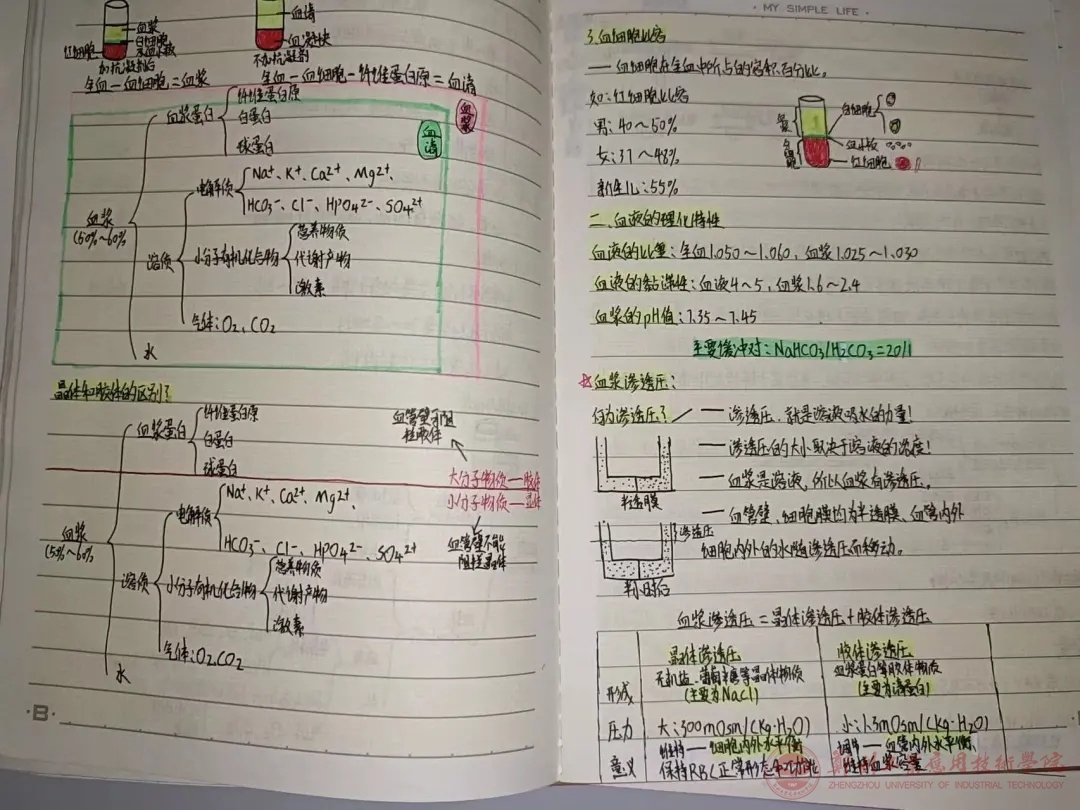 血浆
白细胞
血小板
红细胞
加抗凝剂
血清
血凝块
不加抗凝剂
全血－血细胞＝血浆
全血－血细胞－纤维蛋白原＝血清
血浆
血清
血浆蛋白
纤维蛋白原
白蛋白
球蛋白
血浆
(50%~60%
溶质
电解质
Na⁺、K⁺、Ca²⁺、Mg²⁺、
HCO₃⁻、Cl⁻、HPO₄²⁻、SO₄²⁺
小分子有机化合物
营养物质
代谢产物
激素
气体:O₂、CO₂
水
晶体和胶体的区别?
血浆蛋白
纤维蛋白原
白蛋白
球蛋白
血管壁可阻
拦胶体
大分子物质—胶体
小分子物质—晶体
血管壁不能
阻拦晶体
血浆
(50%~60%
溶质
电解质
Na⁺、K⁺、Ca²⁺、Mg²⁺、
HCO₃⁻、Cl⁻、HPO₄²⁻、SO₄²⁺
小分子有机化合物
营养物质
代谢产物
激素
气体:O₂、CO₂
水
·B·
· MY SIMPLE LIFE ·
3.血细胞比容
—血细胞在全血中所占的容积百分比。
如:红细胞比容
男:40～50%
女:37～48%
新生儿:55%
白细胞
血小板
红细胞
二、血液的理化特性
血液的比重:全血1.050～1.060，血浆1.025～1.030
血液的黏滞性:血液4～5，血浆1.6～2.4
血浆的pH值:7.35～7.45
主要缓冲对:NaHCO₃/H₂CO₃=20/1
☆血浆渗透压:
何为渗透压?
—渗透压，就是溶液吸水的力量!
—渗透压的大小取决于溶液的浓度!
—血浆是溶液，所以血浆有渗透压。
—血管壁、细胞膜均为半透膜、血管内外
细胞内外的水随渗透压而移动。
半透膜
渗透压
半小时后
血浆渗透压＝晶体渗透压＋胶体渗透压
晶体渗透压
胶体渗透压
形成
无机盐、葡萄糖等晶体物质
(主要为NaCl)
血浆蛋白等胶体物质
(主要为清蛋白)
压力
大:300mOsm/(Kg·H₂O)
小:1.3mOsm/(Kg·H₂O)
意义
维持—细胞内外水平衡
保持RBC正常形态和功能
调节—血管内外水平衡、
维持血浆容量
應用技術學院
ZHENGZHOU UNIVERSITY OF INDUSTRIAL TECHNOLOGY